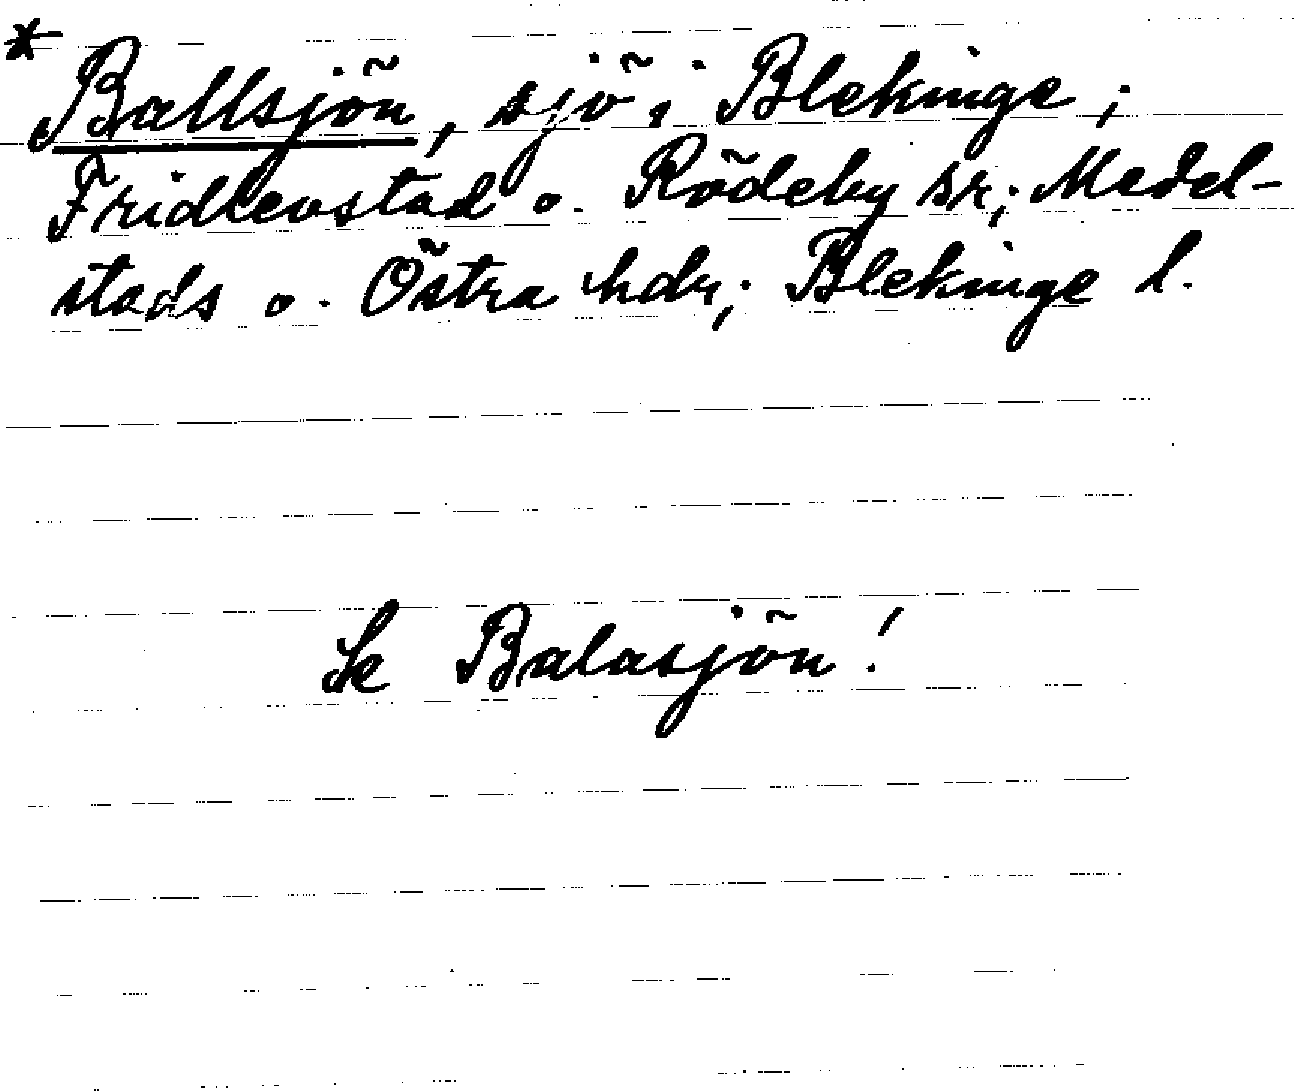 * Ballsjön, sjö i Blekinge;
Fridlevstad o. Rödeby sr; Medel-
stads o. Östra hdr; Blekinge l.
Se Balasjön!